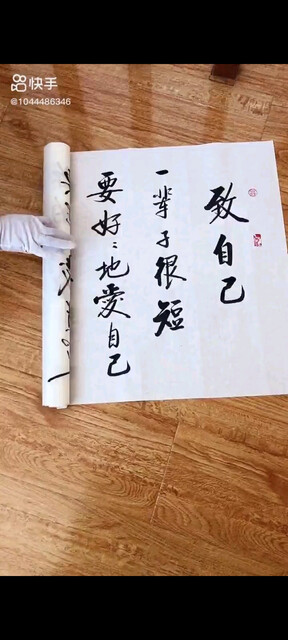 快手
@1044486346
致自己
一辈子很短
要好〻地爱自己